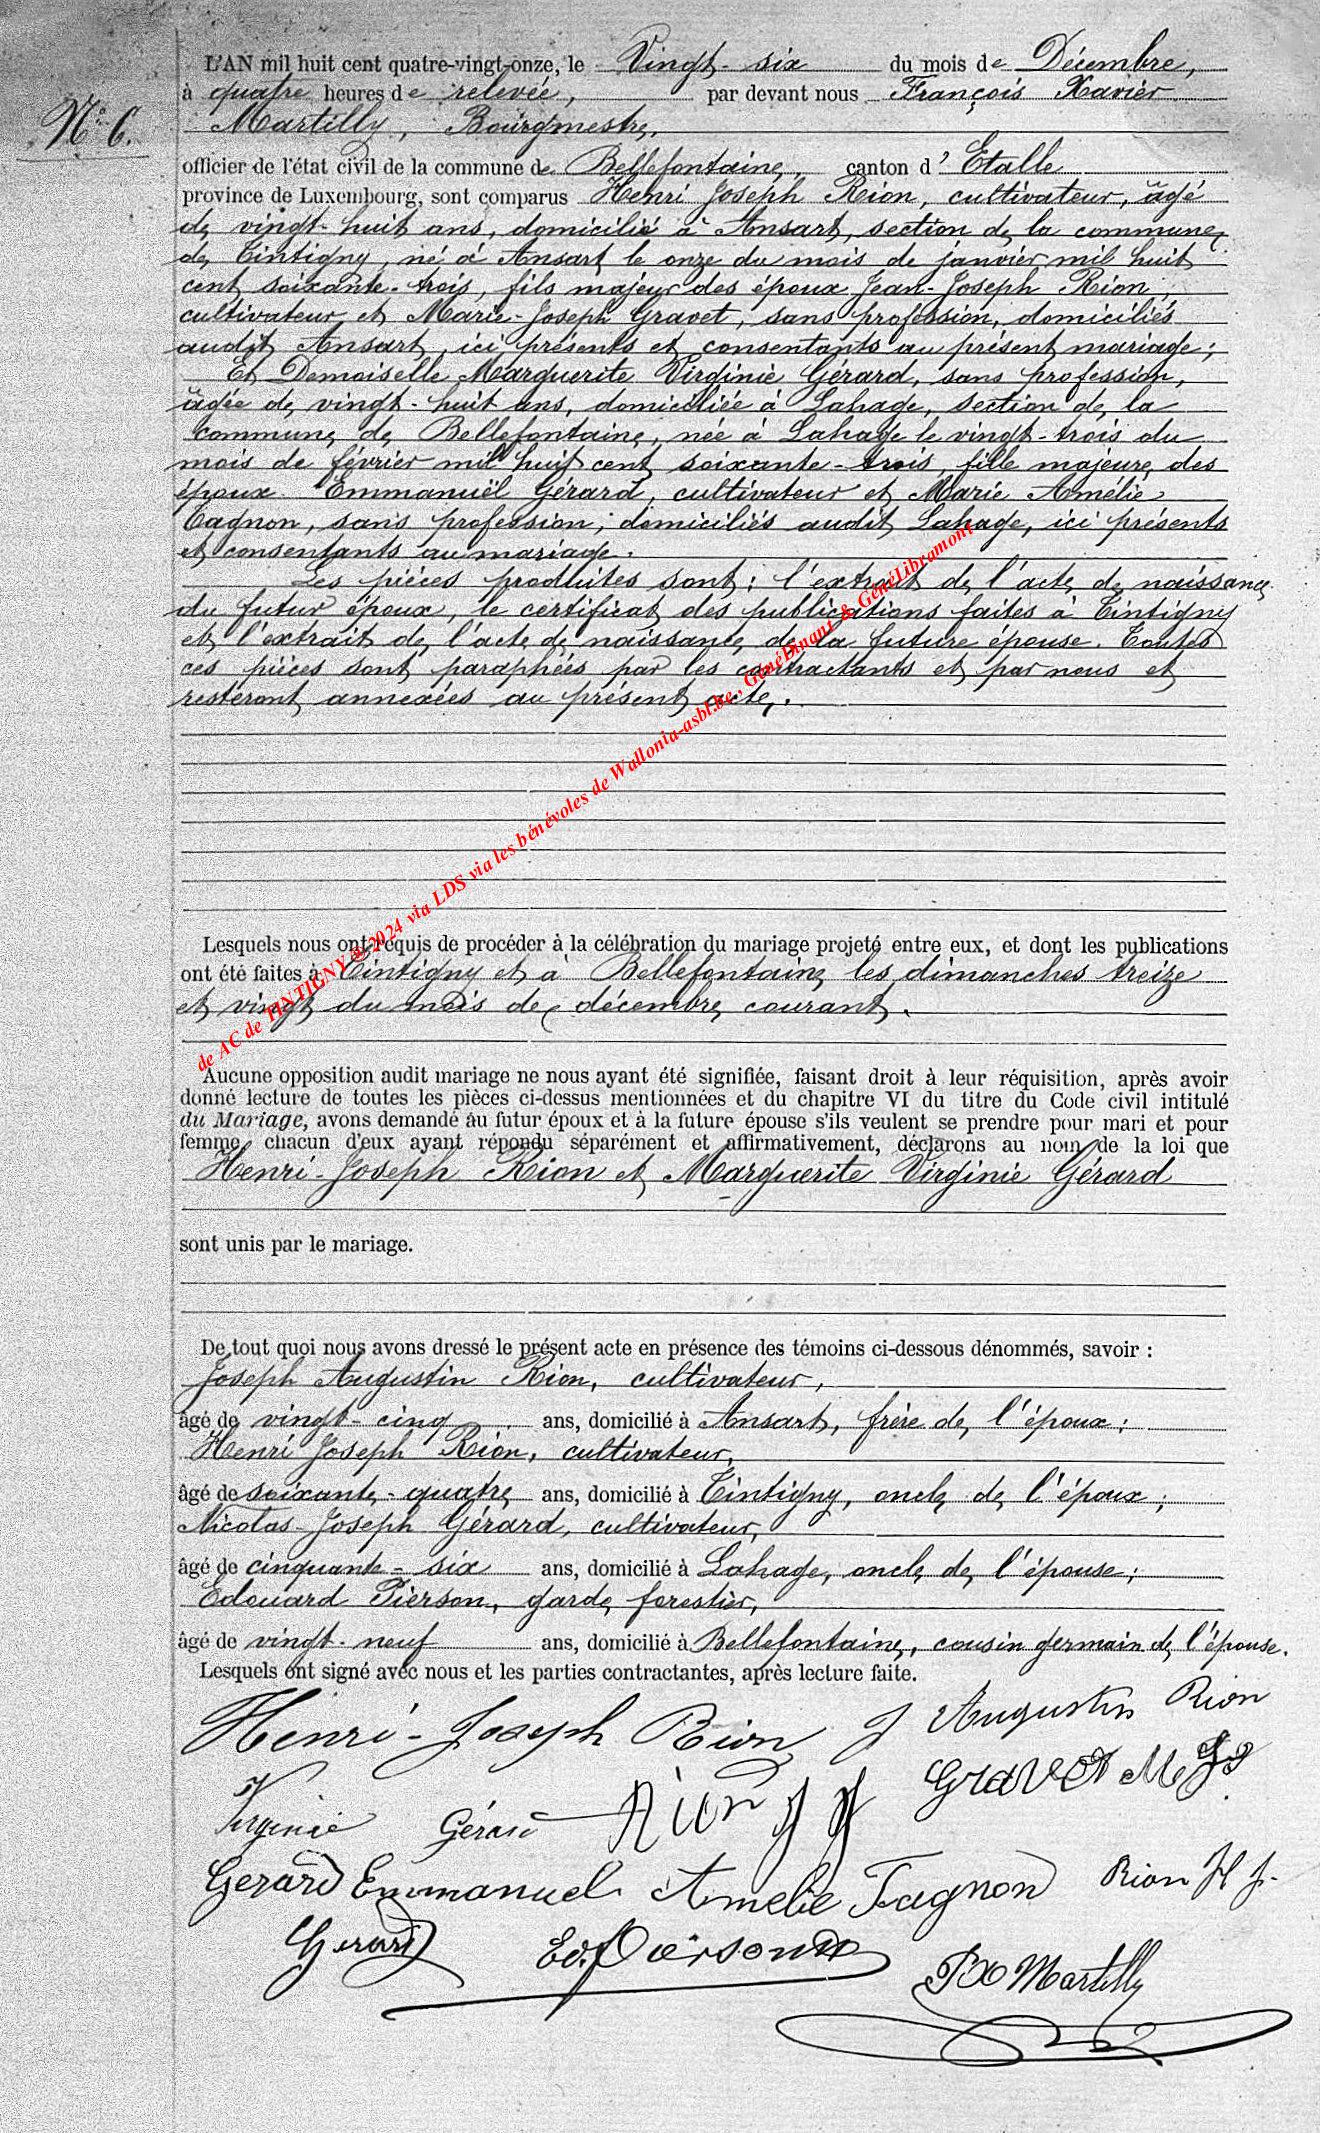 L'AN mil huit cent quatre-vingt-onze, le Vingt-six du mois de Décembre,
à quatre heures de relevée, par devant nous François Xavier
N° 6.
Martilly, Bourgmestre,
officier de l'état civil de la commune de Bellefontaine, canton d'Etalle
province de Luxembourg, sont comparus Henri Joseph Rion, cultivateur, âgé
de vingt-huit ans, domicilié à Ansart, section de la commune
de Tintigny, né à Ansart le onze du mois de janvier mil huit
cent soixante-trois, fils majeur des époux Jean-Joseph Rion,
cultivateur et Marie-Joseph Gravet, sans profession, domiciliés
audit Ansart, ici présents et consentants au présent mariage;
Et Demoiselle Marguerite Virginie Gérard, sans profession,
âgée de vingt-huit ans, domiciliée à Lahage, section de la
commune de Bellefontaine, née à Lahage le vingt-trois du
mois de février mil huit cent soixante-trois, fille majeure des
époux Emmanuël Gérard, cultivateur et Marie Amélie
Tagnon, sans profession, domiciliés audit Lahage, ici présents
et consentants au mariage.
Les pièces produites sont: l'extrait de l'acte de naissance
du futur époux, le certificat des publications faites à Tintigny
et l'extrait de l'acte de naissance de la future épouse. Toutes
ces pièces sont paraphées par les contractants et par nous et
resteront annexées au présent acte.
de AC de TINTIGNY @ 2024 via LDS via les bénévoles de Wallonia-asbl.be, GénéDinant & GénéLibramont
Lesquels nous ont requis de procéder à la célébration du mariage projeté entre eux, et dont les publications
ont été faites à Tintigny et à Bellefontaine les dimanches treize
et vingt du mois de décembre courant.
Aucune opposition audit mariage ne nous ayant été signifiée, faisant droit à leur réquisition, après avoir
donné lecture de toutes les pièces ci-dessus mentionnées et du chapitre VI du titre du Code civil intitulé
du Mariage, avons demandé au futur époux et à la future épouse s'ils veulent se prendre pour mari et pour
femme, chacun d'eux ayant répondu séparément et affirmativement, déclarons au nom de la loi que
Henri-Joseph Rion et Marguerite Virginie Gérard
sont unis par le mariage.
De tout quoi nous avons dressé le présent acte en présence des témoins ci-dessous dénommés, savoir :
Joseph Augustin Rion, cultivateur,
âgé de vingt-cinq ans, domicilié à Ansart, frère de l'époux;
Henri Joseph Rion, cultivateur,
âgé de soixante-quatre ans, domicilié à Tintigny, oncle de l'époux;
Nicolas-Joseph Gérard, cultivateur,
âgé de cinquante-six ans, domicilié à Lahage, oncle de l'épouse;
Edouard Pierson, garde forestier,
âgé de vingt-neuf ans, domicilié à Bellefontaine, cousin germain de l'épouse.
Lesquels ont signé avec nous et les parties contractantes, après lecture faite.
Henri-Joseph Rion J Augustin Rion
Virginie Gérard Rion J J Gravet M J
Gerard Emmanuel Amelie Tagnon Rion H J.
Gerard Ed. Pierson FX Martilly